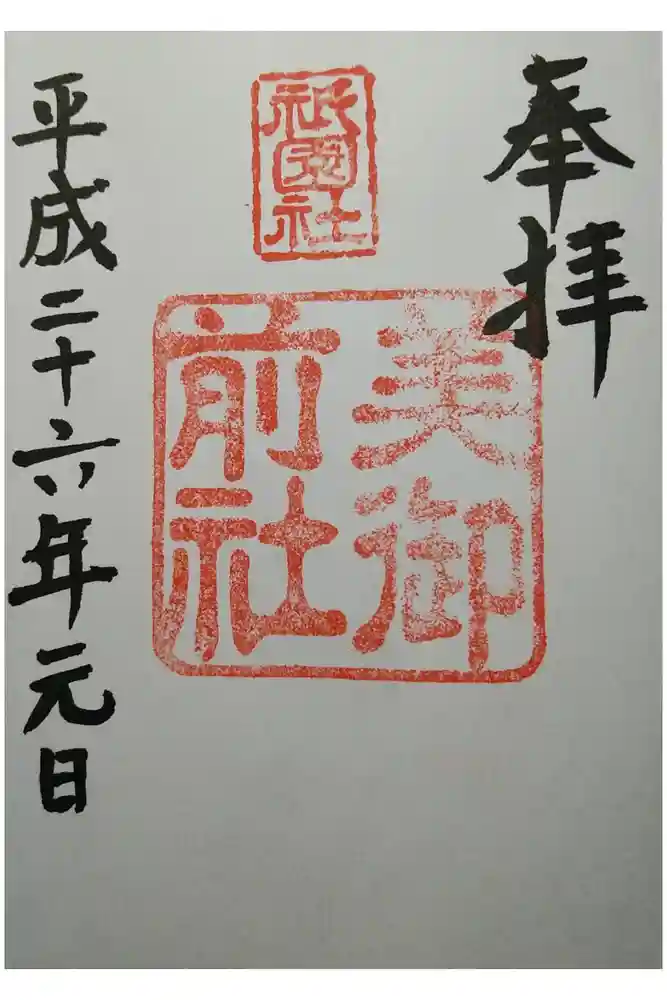 奉拝
祇園社
美御
前社
平成二十六年元日